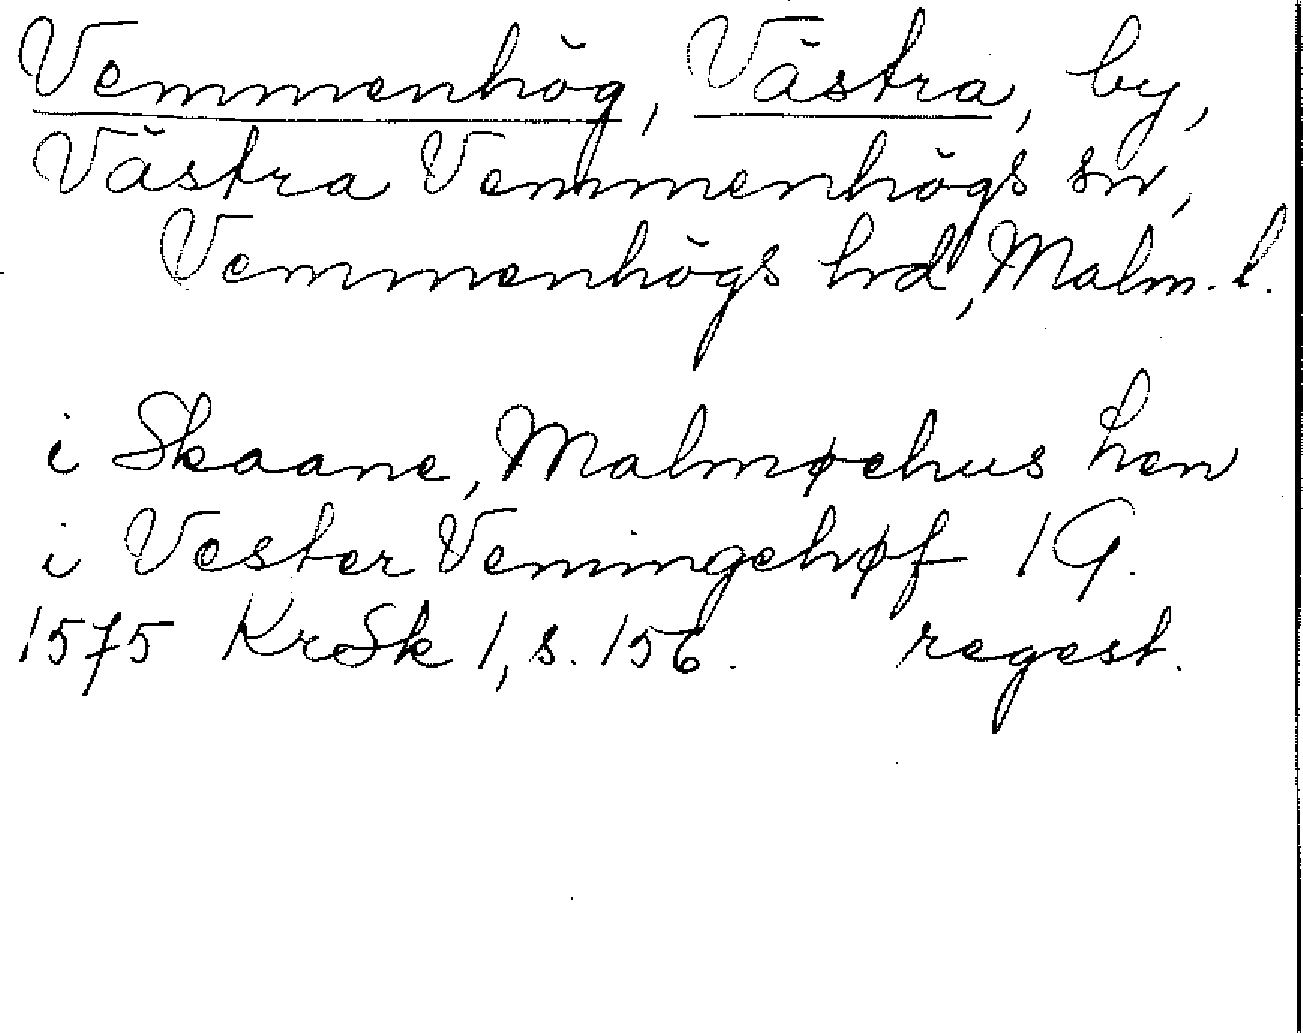 Vemmenhög, Västra, by,
Västra Vemmenhögs sn,
Vemmenhögs hrd, Malm. l.
i Skaane, Malmøehus Len
i Vester Vemingehøf 1 G.
1575 KrSk 1, s. 156. regest.